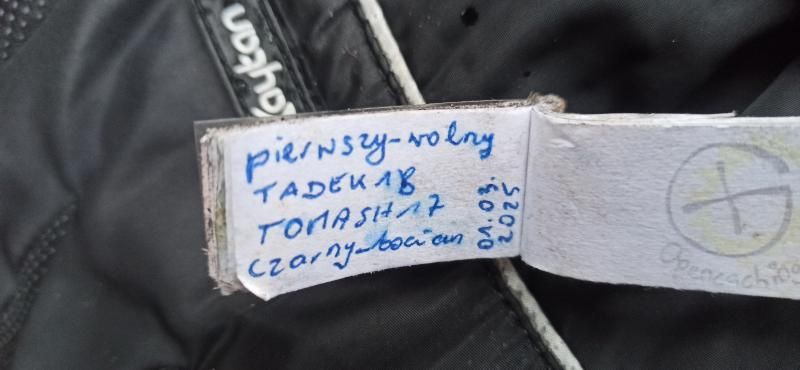 pierwszy-wolny
TADEK18
TOMASH17
czarny-bocian
01.03.
2025
Opencaching